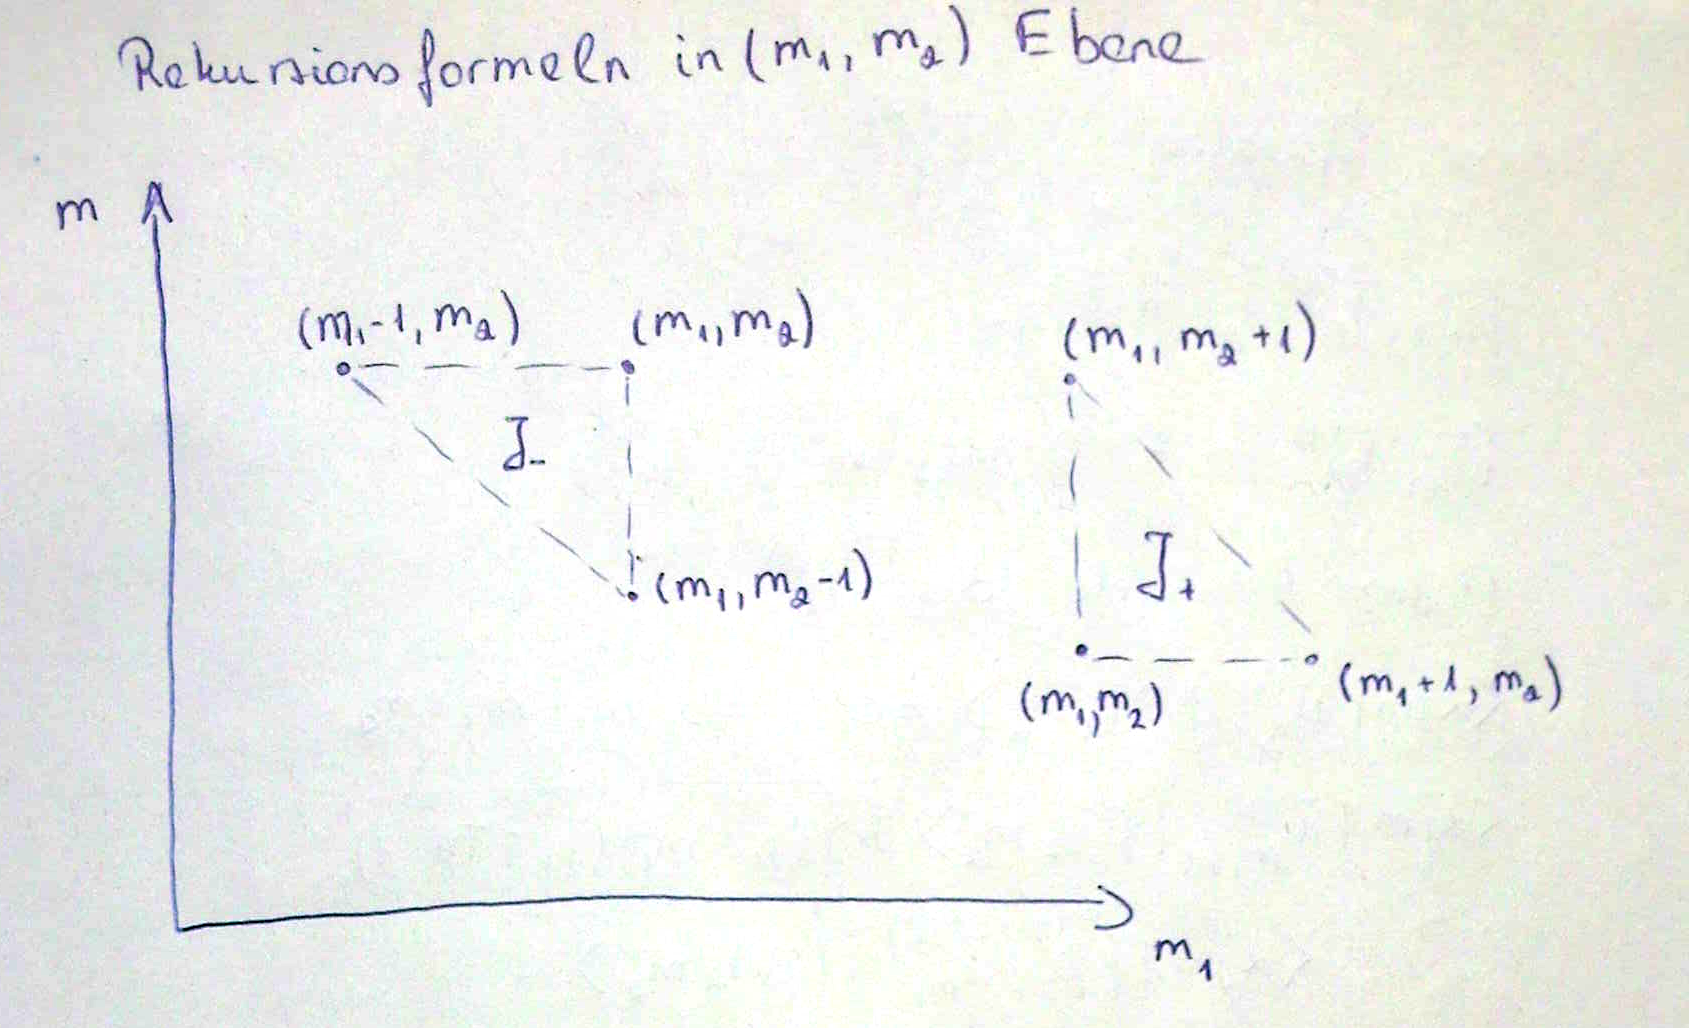 Rekursionsformeln in (m₁, m₂) Ebene
m
(m₁-1, m₂) (m₁, m₂) (m₁, m₂+1)
J₋
J₊
(m₁, m₂-1)
(m₁, m₂) (m₁+1, m₂)
m₁